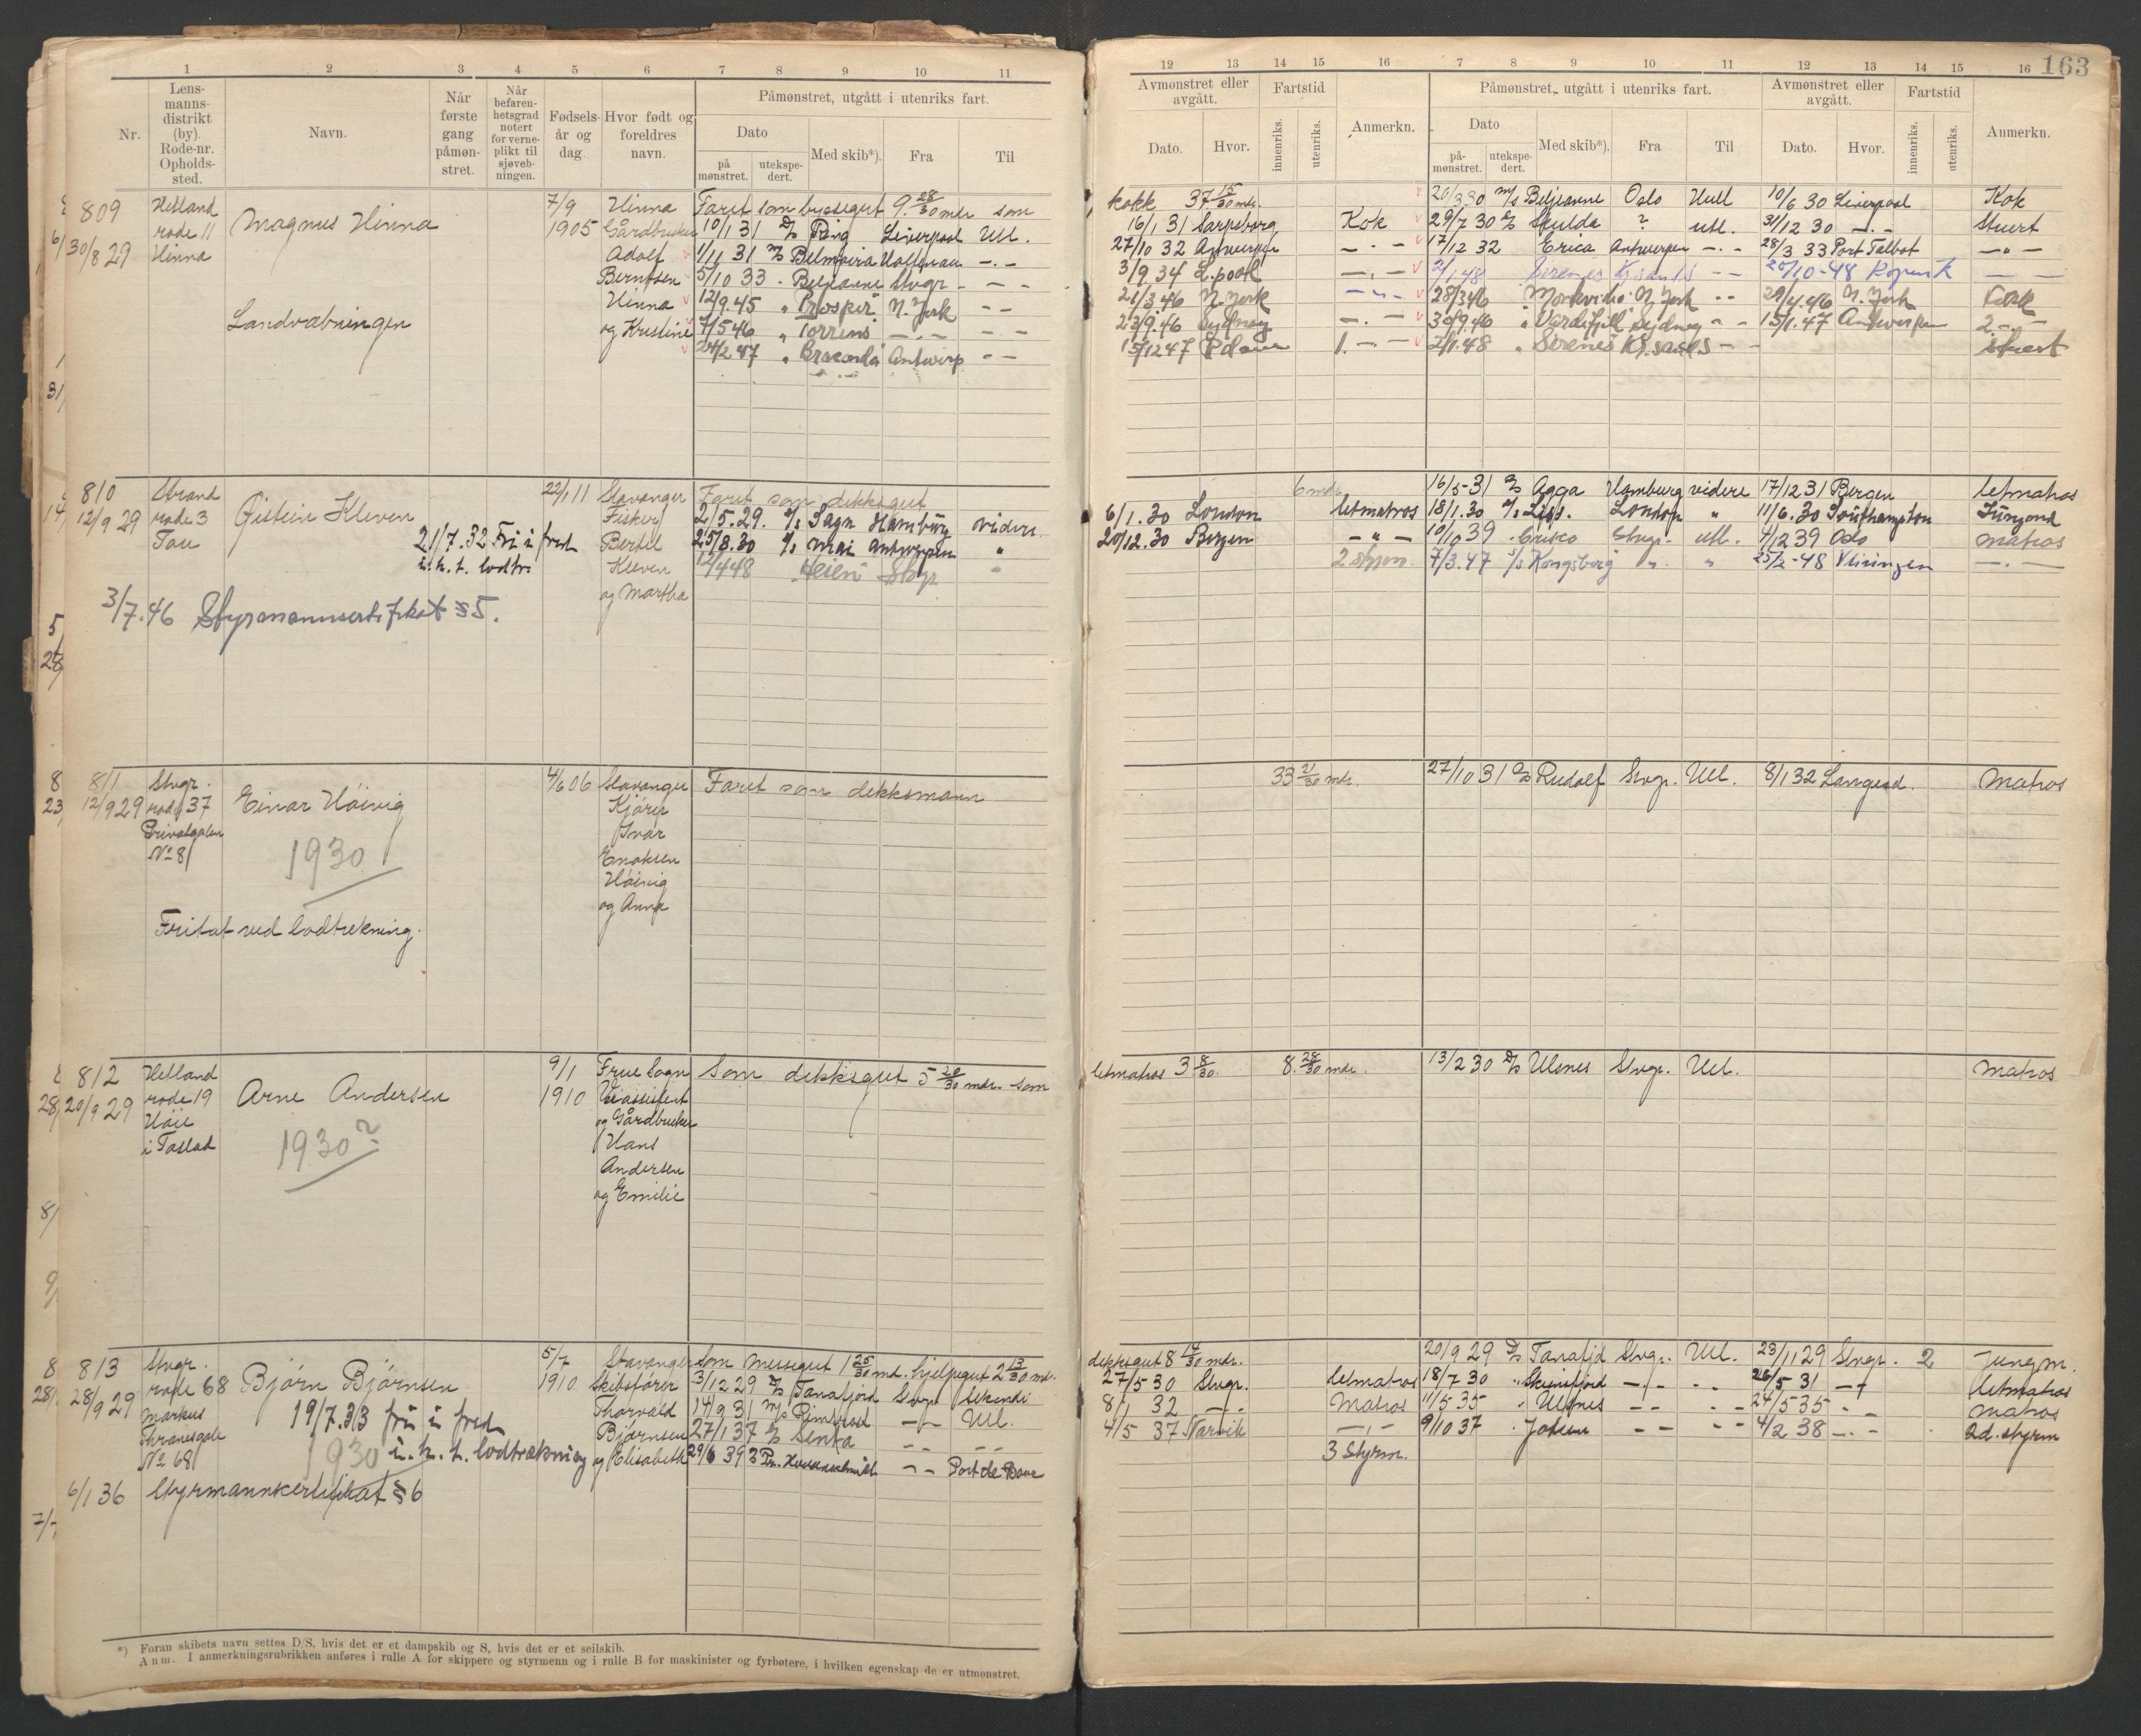 163
1 2 3 4 5 6 7 8 9 10 11
Nr.
Lens-
manns-
distrikt
(by).
Rode-nr.
Opholds-
sted.
Navn.
Når
første
gang
påmøn-
stret.
Når
befaren-
hetsgrad
notert
for verne-
plikt til
sjøveb-
ningen.
Fødsels-
år og
dag.
Hvor født og
foreldres
navn.
Påmønstret, utgått i utenriks fart.
Dato
på
mønstret.
utekspe-
dert.
Med skib*).
Fra
Til
12 13 14 15 16 7 8 9 10 11 12 13 14 15 16
Avmønstret eller
avgått.
Dato.
Hvor.
Fartstid
innenriks.
utenriks.
Anmerkn.
Påmønstret, utgått i utenriks fart.
Dato
på-
mønstret.
utekspe-
dert.
Med skib*).
Fra
Til
Avmønstret eller
avgått.
Dato.
Hvor.
Fartstid
innenriks.
utenriks.
Anmerkn.
809
30/8 29
Hetland
rode 11
Hinna
Magnus Hinna
Landvæbningen
7/9
1905
Hinna
Gårdbruker
Adolf
Berntsen
Hinna
og Kristine
Faret som byssegut 9 28/30 mdr som
10/1 31 D/S Ring Liverpool Utl.
1/11 31 M/S Belmoira
5/10 33 Beljeanne Stvgr - - -
12/9.45 " "Prosper" N. York - -
7/5 46 " Torrens - . - - -
24/2 47 " Antwerp - -
kokk 37 15/30 mdr.
16/1 31 Sarpsborg Kok
27/10 32 Antwerpen - . -
3/9 34 L.pool - . -
21/3 46 N. York - . -
23/9.46 Sydney - . -
15/12 47 1. - . -
20/3 30 M/S Beljeanne Oslo Hull 10/6 30 Liverpool Kok
29/7 30 D/S Skulda ? utl. 31/12 30 - . - Stuert
17/12 32 Erica Antwerpen - . - 28/3 33 Port Talbot - " -
2/1.48 Sirenes Kr.sand S - - 20/10-48 - -
28/3 46 Montevideo N. York - - 29/4.46 N. York Kokk
30/9.46 " Vardefjell Sydney - - 15/1.47 Antwerpen 2 - . -
2/1.48 " Sirenes Kr.sand S - - stuert
810
12/9 29
Strand
rode 3
Tau
Øistein Kleven
21/7.32 Fri i fred
i. h. t. lodtr.
3/7.46 Styrmannsertifikat § 5.
22/1 11
Stavanger
Fisker
Bertel
Kleven
og Martha
Faret som dekksgut
2/5.29. S/S Sagn Hamburg videre
25/8.30 S/S Mai Antwerpen "
12/4 48 Heien Stvgr "
6 mdr
6/1.30 London letmatros
20/12.30 Bergen - " -
2 Styrm.
16/5-31 D/S Agga Hamburg videre 17/12 31 Bergen letmatros
18/1.30 S/S London " 11/6.30 Southampton Jungmd
10/10 39 Crisco Stvgr. utl. 4/12 39 Oslo matros
7/3.47 S/S Kongsborg " " 25/2-48 - . -
811
12/9 29
Stvgr.
rode 37
Privatgaten
No 8
Einar Höivig
1930
Fritat ved lodtrekning.
4/6 06
Stavanger
Ivar
Enoksen
Höivig
og Anna
Faret som dekksmann
33 21/30 mdr.
27/10 31 D/S Rudolf Stvgr. Utl. 8/1 32 Langesd. Matros
812
20/9 29
Hetland
rode 19
Höie
i Tastad
Arne Andersen
1930?
9/1
1910
Frue Sogn
og Gårdbruker
Hans
Andersen
og Emilie
Som dekksgut 5 20/30 mdr. som
letmatros 3 8/30. 8. 28/30 mdr.
13/2 30 D/S Ulsnes Stvgr. Utl. Matros
813
28/9 29
Stvgr.
rode 68
Markus
Thranesgate
No 68
Bjørn Bjørnsen
19/7.33 fri i fred
1930 i. h. t. lodtrækning
6/1 36 Styrmannsertifikat § 6
5/7
1910
Stavanger
Skibsfører
Thorvald
Bjørnsen
og Elisabeth
Som messegut 1 25/30 md. hjelpegut 2 13/30 md.
3/12 29 D/S Tanafjord Stvgr.
14/9 31 M/S - - Utl.
27/1 37 D/S Senta - - - -
29/6 39 - - Port de Bouc
dekksgut 8 14/30 mdr.
27/5 30 Stvgr. letmatros
8/1 32 - . - Matros
4/5 37 Narvik - . -
3 Styrm.
20/9 29 D/S Tanafjd Stvgr. Utl. 23/11 29 Stvgr. 2 Jungm.
18/7 30 " Skiensfjord - - - . 26/5 31 - - letmatros
11/5 35 " Ulsnes - - - . 24/5 35 - . - matros
9/10 37 " - - - - 4/2 38 - . - 2d. styrm
*) Foran skibets navn settes D/S, hvis det er et dampskib og S, hvis det er et seilskib.
Anm. I anmerkningsrubrikken anføres i rulle A for skippere og styrmenn og i rulle B for maskinister og fyrbøtere, i hvilken egenskap de er utmønstret.